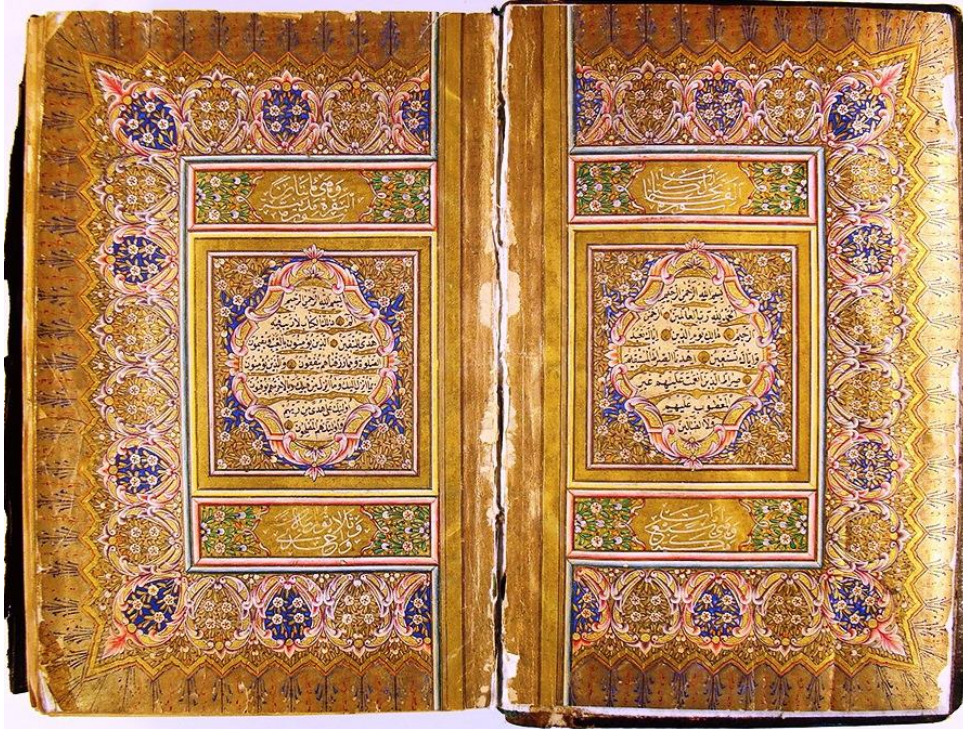 بسم الله الرحمن الرحيم
الحمد لله رب العالمين الرحمن
الرحيم مالك يوم الدين اياك نعبد
واياك نستعين اهدنا الصراط المستقيم
صراط الذين انعمت عليهم غير
المغضوب عليهم
ولا الضالين
وهي سبع ايات
وهي مائتان
سورة البقرة مدنية
بسم الله الرحمن الرحيم
الم ذلك الكتاب لا ريب فيه
هدى للمتقين الذين يؤمنون بالغيب ويقيمون
الصلوة ومما رزقناهم ينفقون والذين يؤمنون
بما انزل اليك وما انزل من قبلك وبالاخرة هم يوقنون
اولئك على هدى من ربهم
واولئك هم المفلحون